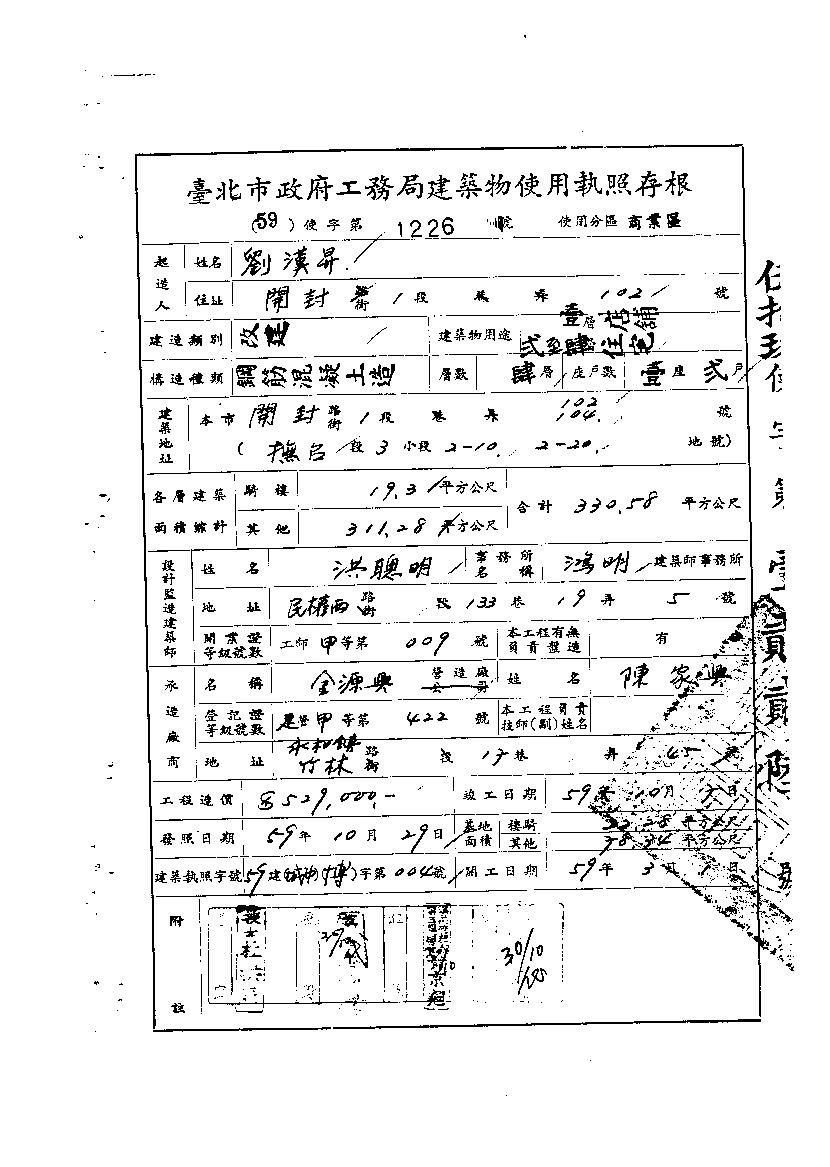 臺北市政府工務局建築物使用執照存根
(59)使字第 1226 號 使用分區 商業區
起造人 姓名 劉漢昇
住址 開封街 1段 巷 弄 102 號
建造類別 改建 建築物用途 壹層店舖 弍至肆層住宅
構造種類 鋼筋混凝土造 層數 肆層 座戶數 壹座 弍戶
建築地址 本市 開封 路街 1段 巷 弄 102 104 號
(撫台 段 3 小段 2-10, 2-20, 地號)
各層建築面積總計 騎樓 19.31 平方公尺 合計 330.58 平方公尺
其他 311.28 平方公尺
設計監造建築師 姓名 洪聰明 事務所名稱 鴻明 建築師事務所
地址 民權西 路街 段 133 巷 19 弄 5 號
開業證等級號數 工師 甲等第 009 號 本工程有無負責監造 有
承造廠商 名稱 金源興 營造廠公司 姓名 陳家興
登記證等級號數 甲等第 422 號 本工程負責技師(副)姓名
地址 永和鎮竹林 路街 段 17 巷 弄 45 號
工程造價 529,000.- 竣工日期 59年 10月 日
發照日期 59年 10月 29日 基地面積 騎樓 平方公尺
其他 78.34 平方公尺
建築執照字號 59建 字第 004號 開工日期 59年 3月 1日
附註
30/10